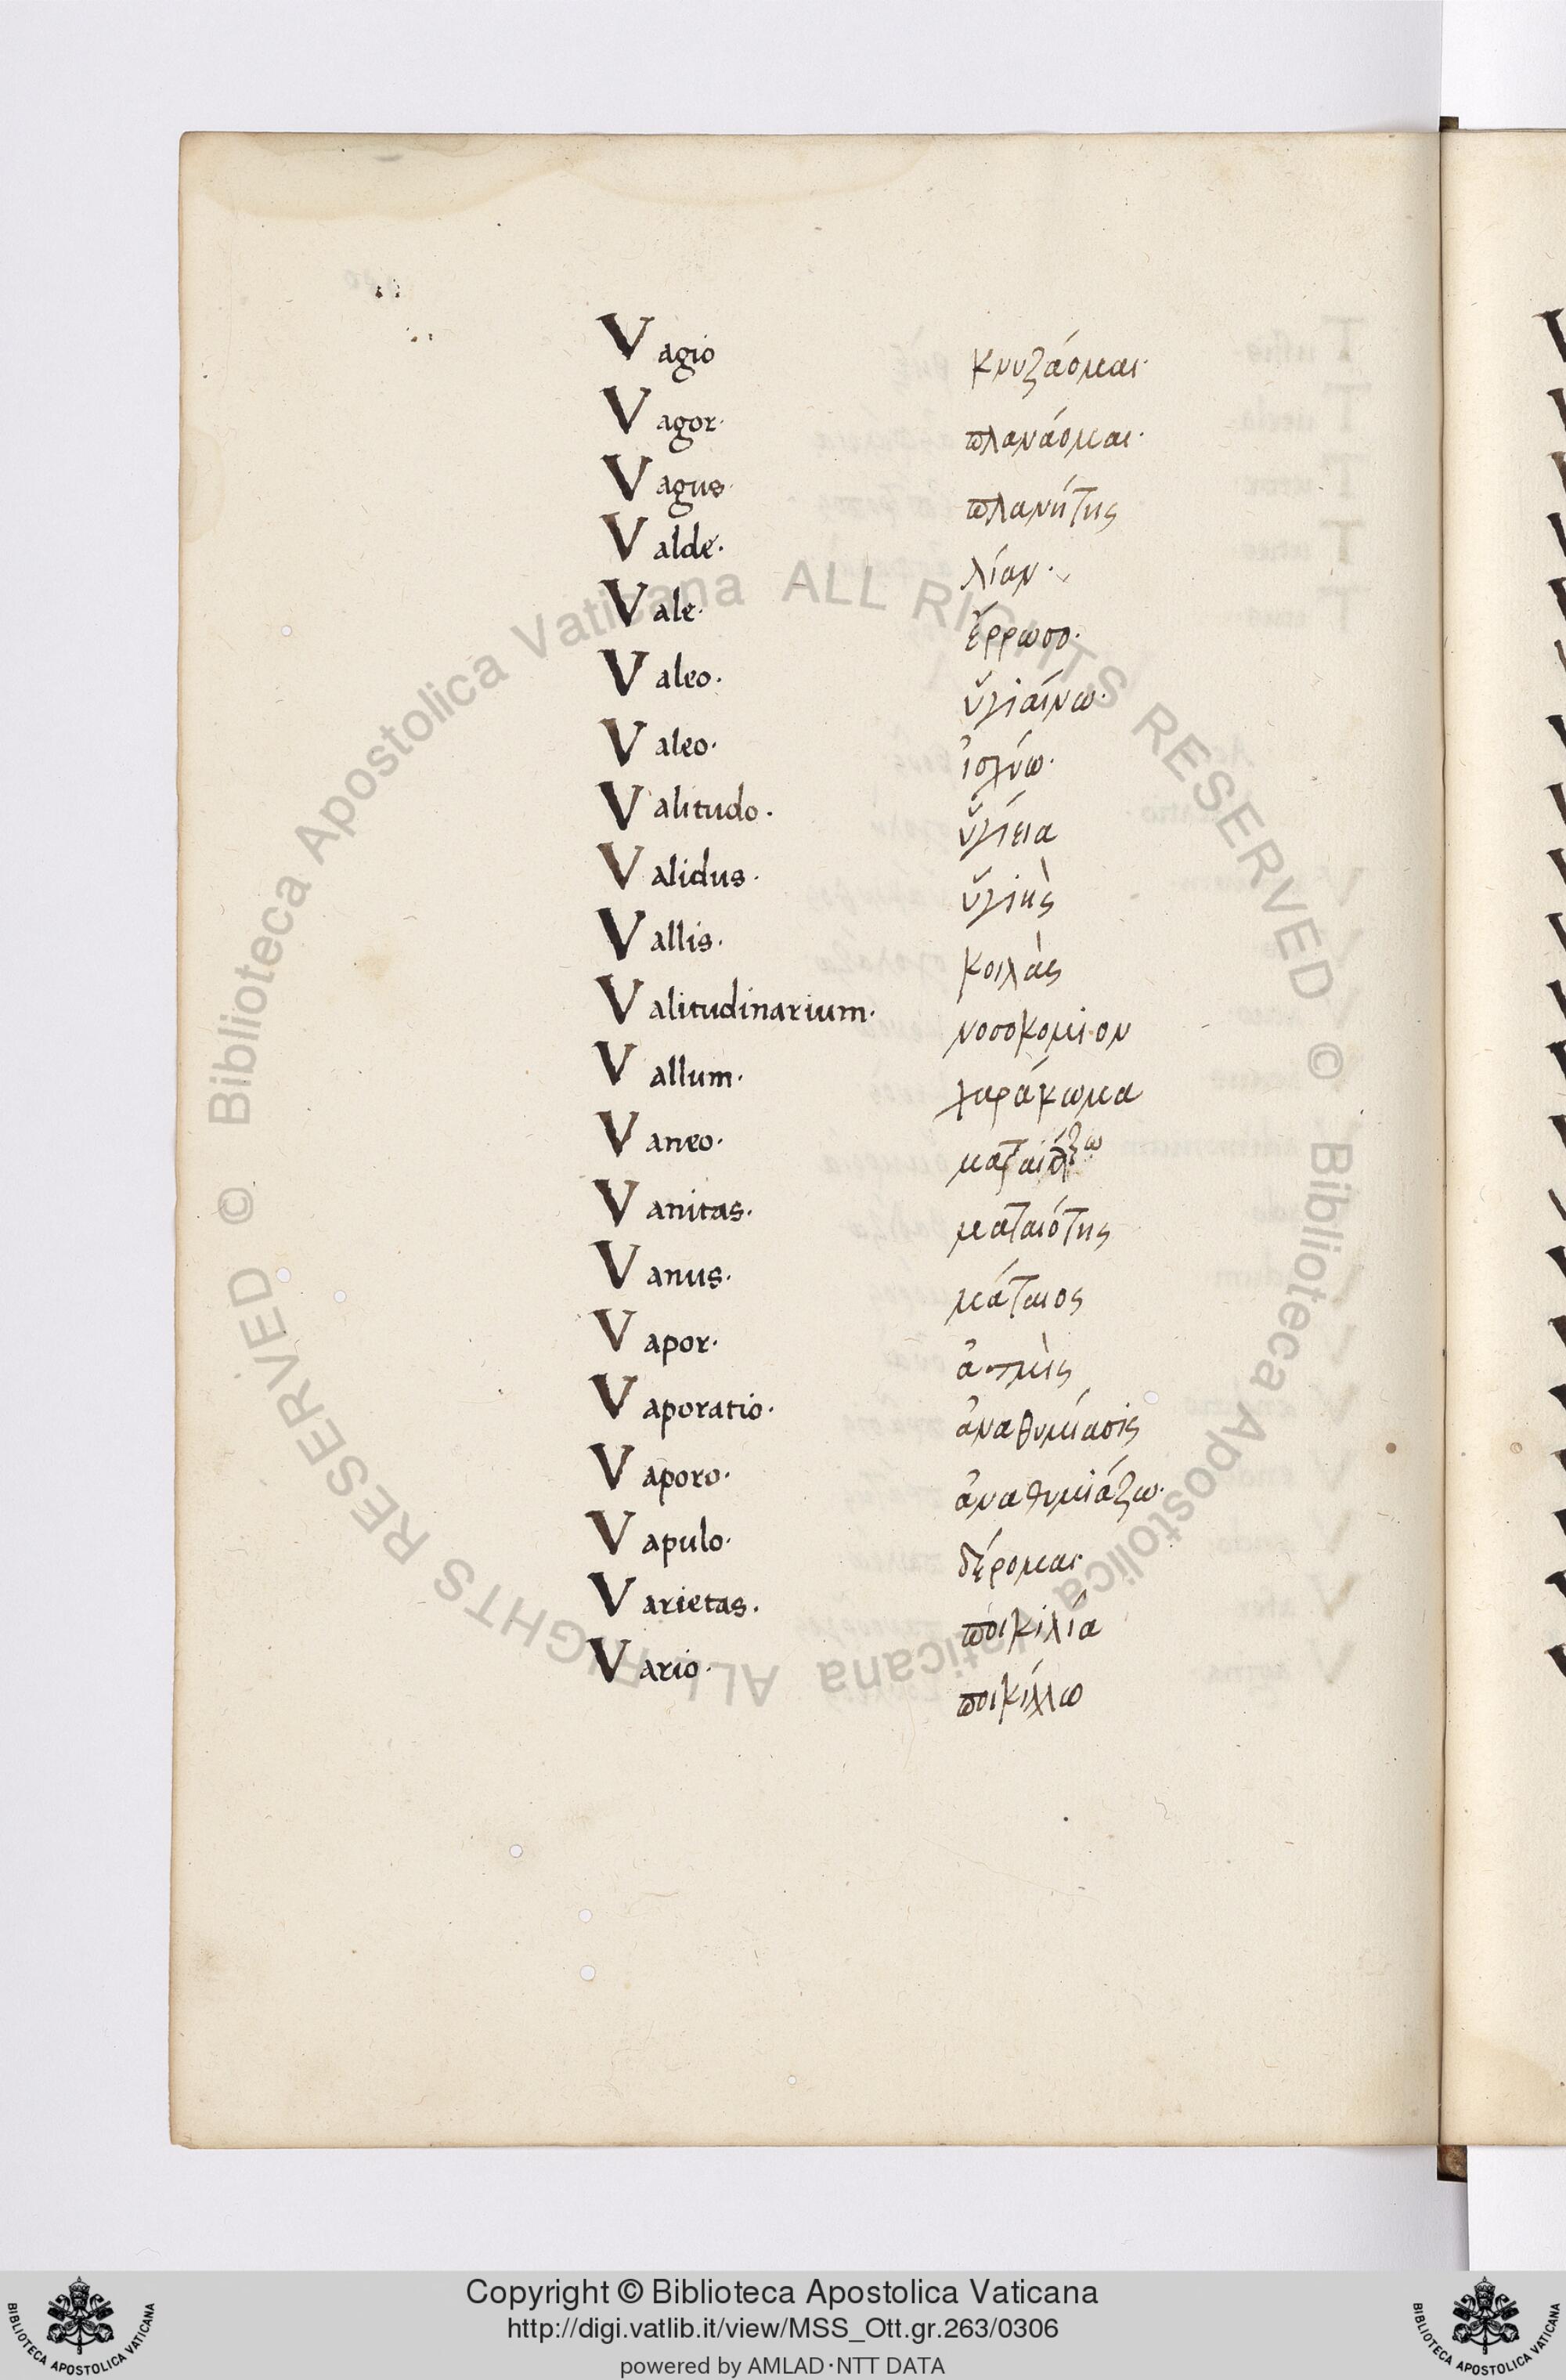 Vagio κνυζάομαι·
Vagor· πλανάομαι·
Vagus· πλανήτης
Valde· λίαν·
Vale· ἔρρωσο·
Valeo· ὑγιαίνω·
Valeo· ἰσχύω·
Valitudo· ὑγίεια
Validus· ὑγιὴς
Vallis· κοιλὰς
Valitudinarium· νοσοκομιον
Vallum· χαράκωμα
Vaneo·
Vanitas· ματαιότης
Vanus· μάταιος
Vapor· ἀτμὶς
Vaporatio· ἀναθυμίασις
Vaporo· ἀναθυμιάζω·
Vapulo· δέρομαι
Varietas· ποικιλία
Vario· ποικίλλω
© Biblioteca Apostolica Vaticana ALL RIGHTS RESERVED © Biblioteca Apostolica Vaticana ALL RIGHTS RESERVED
Copyright © Biblioteca Apostolica Vaticana
http://digi.vatlib.it/view/MSS_Ott.gr.263/0306
powered by AMLAD·NTT DATA
BIBLIOTECA APOSTOLICA VATICANA
BIBLIOTECA APOSTOLICA VATICANA